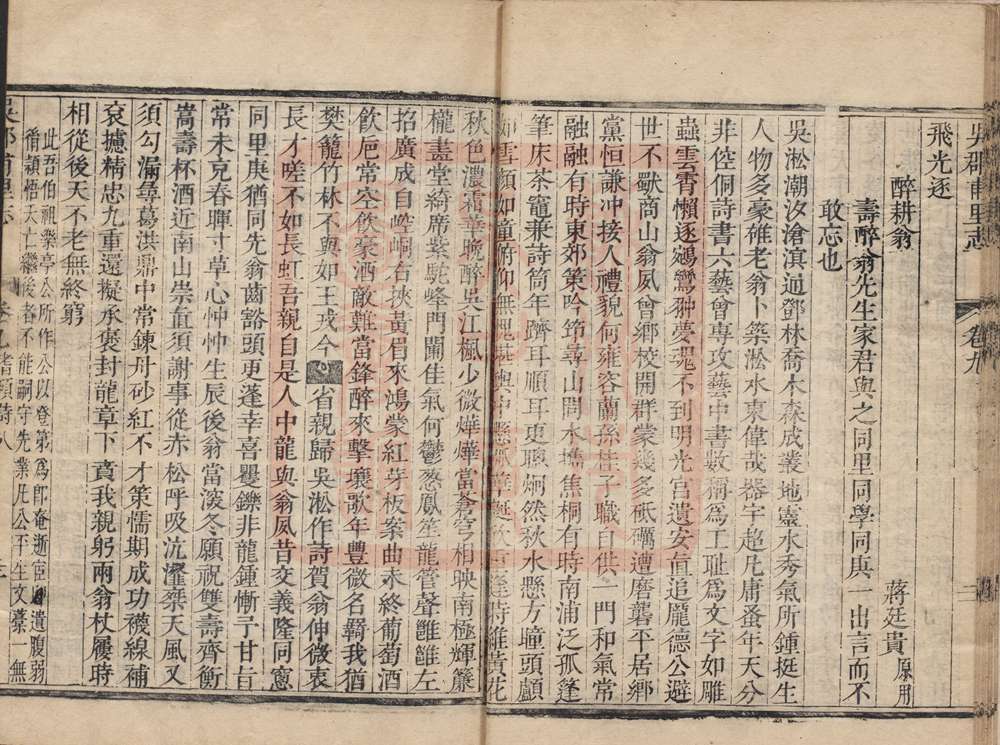 吳郡甫里志 卷九
飛光逐
醉耕翁 蔣廷貴 原用
壽醉翁先生家君與之同里同學同庚一出言而不
敢忘也
吳淞潮汐滄滇通鄧林喬木森成叢地靈水秀氣所鍾挺生
人物多豪碓老翁卜築淞水東偉哉器宇超凡庸蚤年天分
非倥侗詩書六藝曾專攻藝中書數稱爲工耻爲文字如雕
蟲雲霄懶逐鵷鸞翀夢魂不到明光宮遺安直追龐德公避
世不獸商山翁夙曾鄉校開群蒙幾多砥礪遭磨礱平居鄉
黨恒謙冲接人禮貌何雍容蘭孫桂子職自供一門和氣常
融融有時東郊策吟筇尋山問水攜焦桐有時南浦泛孤篷
筆床茶竈兼詩筒年躋耳順耳更聰炯然秋水懸方瞳頭顱
如雪顏如童俯仰無愧 維黃花
秋色濃霜華晚醉吳江楓少微燁燁當蒼穹相映南極輝簾
櫳盡堂綺席紫駝峰門闌佳氣何鬱葱鳳笙龍管聲雝雝左
招廣成自崆峒右挾黃眉來鴻蒙紅芽板案曲未終葡萄酒
飲卮常空飲豪酒敵難當鋒醉來擊壤歌年豊微名羈我猶
樊籠竹林不與如王戎今 省親歸吳淞作詩賀翁伸微衷
長才嗟不如長虹吾親自是人中龍與翁夙昔交義隆同窻
同里庚猶同先翁齒豁頭更蓬幸喜矍鑠非龍鍾慚予甘旨
常未克春暉寸草心忡忡生辰後翁當深冬願祝雙壽齊衡
嵩壽杯酒近南山崇直須謝事從赤松呼吸沆瀣乘天風又
須勾漏尋葛洪鼎中常鍊丹砂紅不才策懦期成功襪線補
衮攄精忠九重還擬承褒封龍章下賁我親躬兩翁杖履時
相從後天不老無終窮
此吾伯祖樂亭公所作公以登第爲郎奄逝宦 遺腹弱
脩頴悟夭亡繼後者不能嗣守先業凡公平生文藁一無